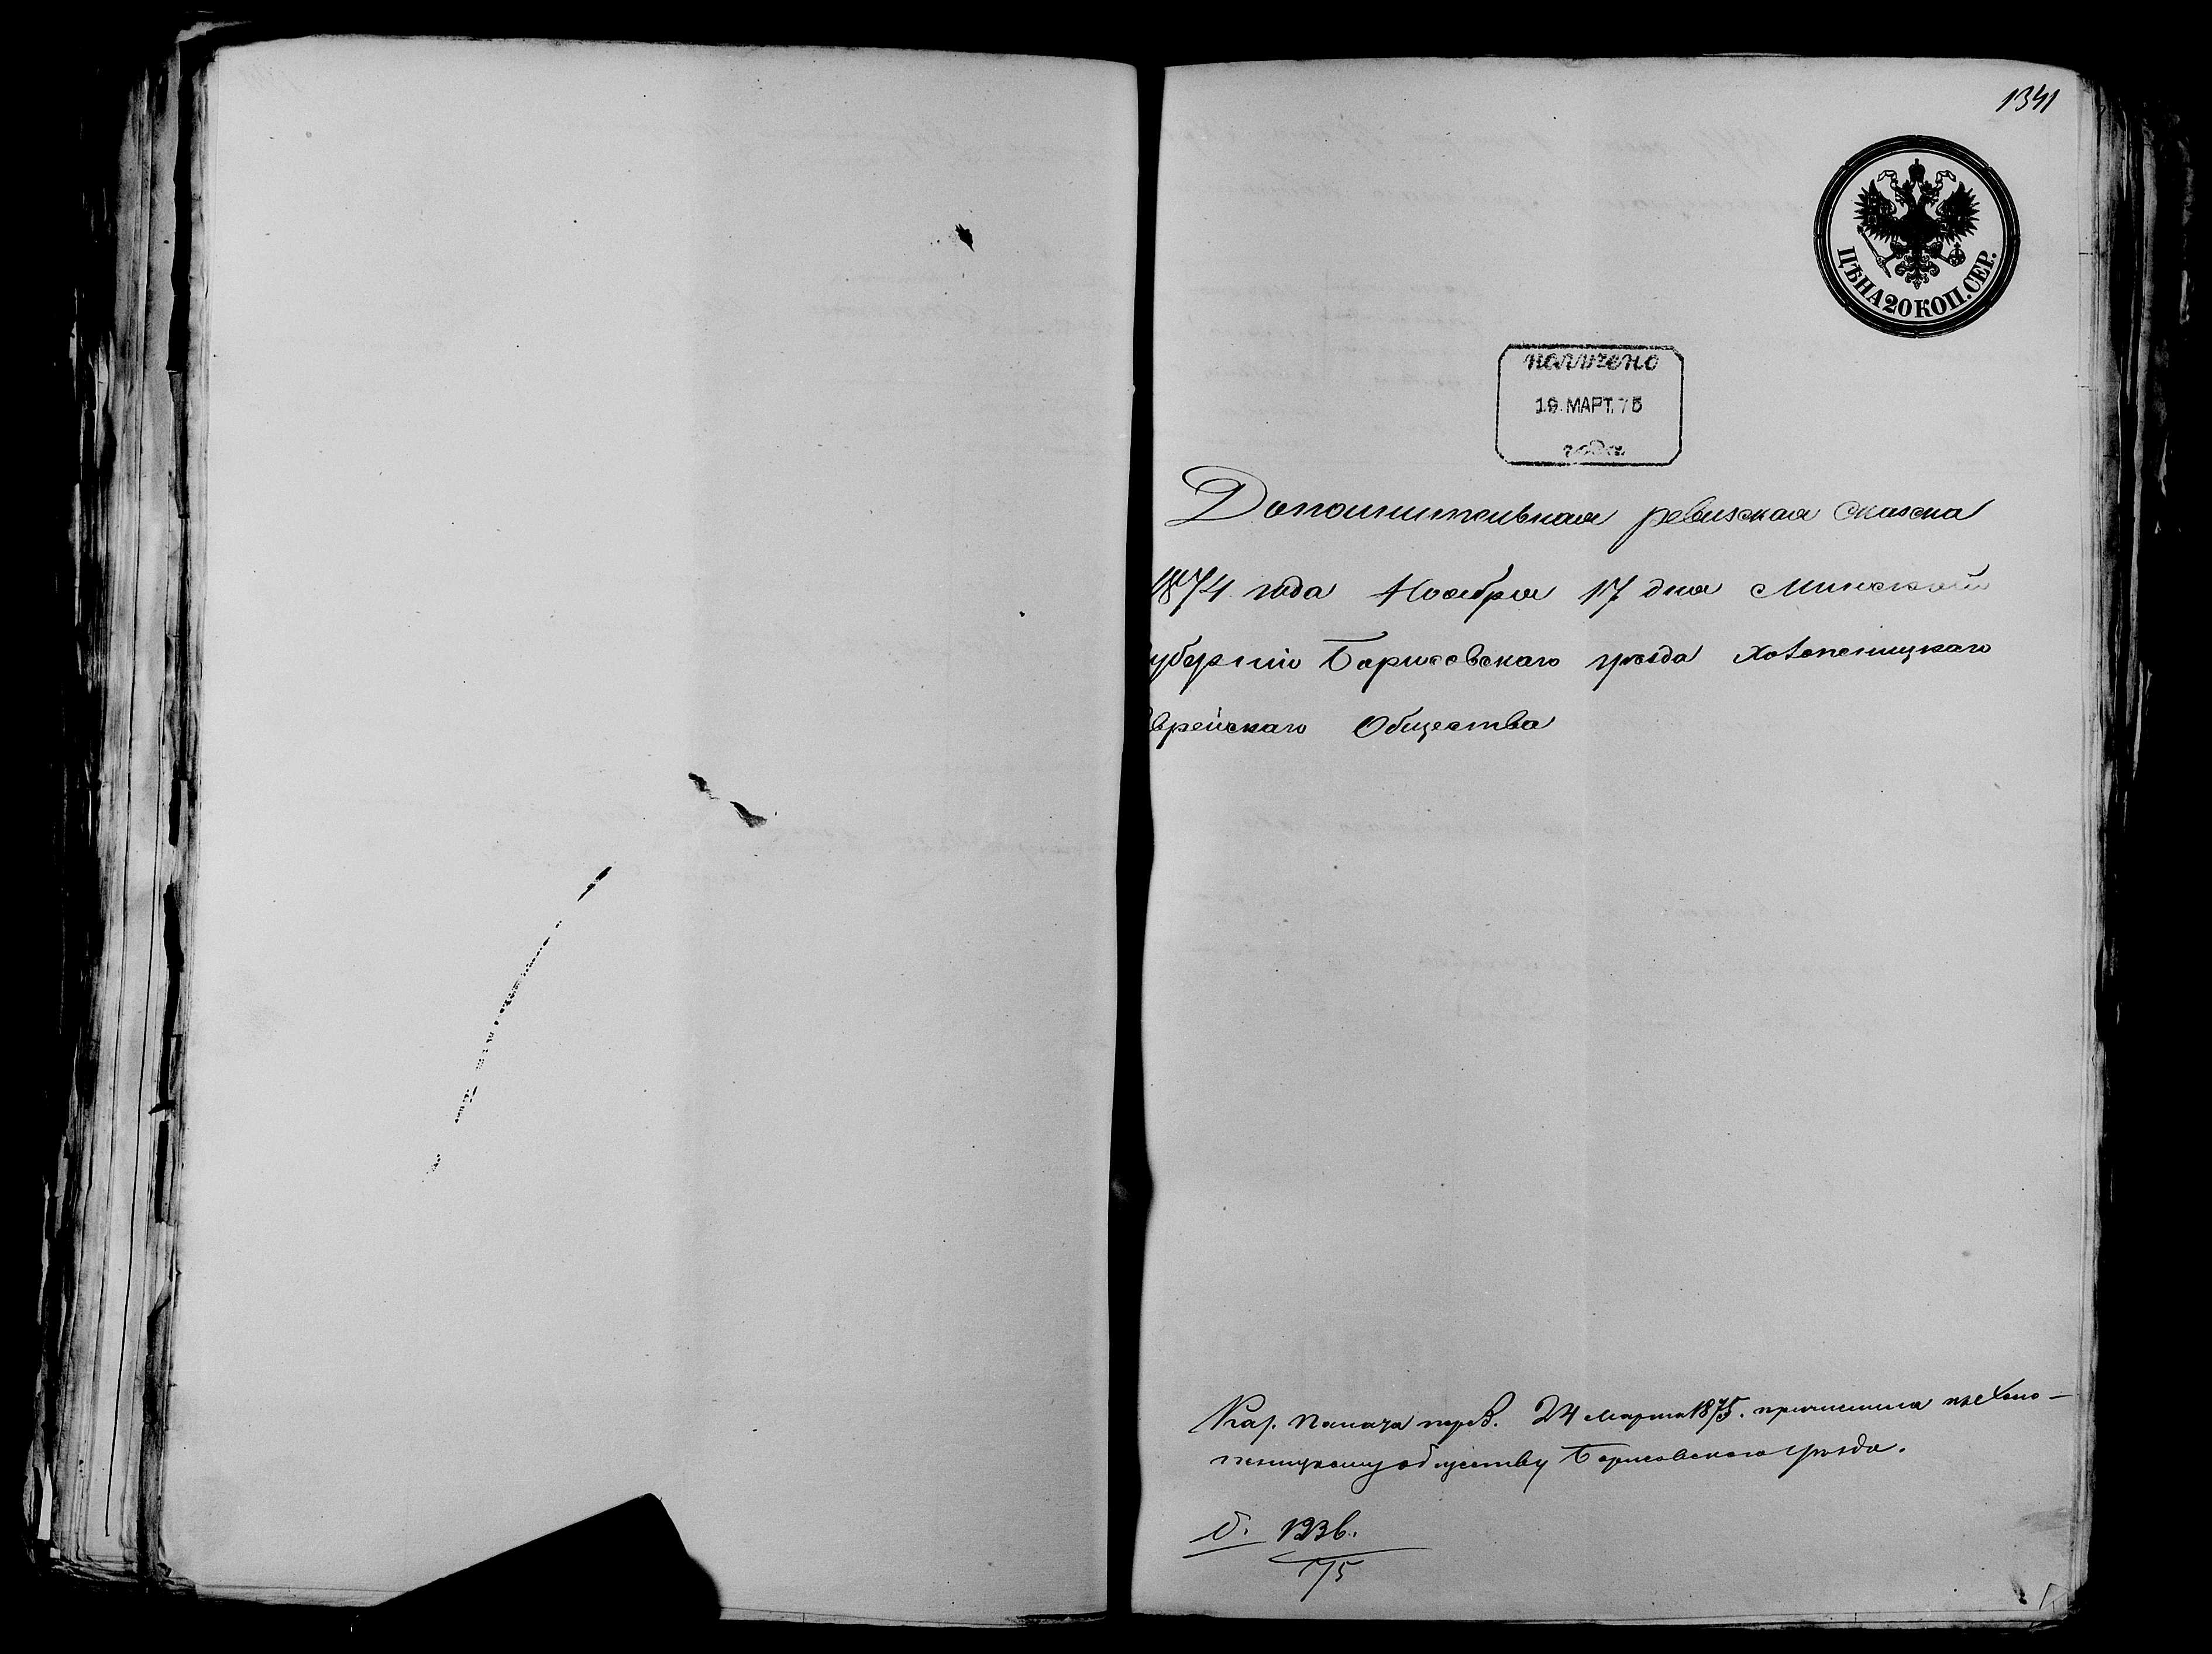 1341
ЦѢНА 20 КОП. СЕР.
получено
19. МАРТ. 75
года
Дополнительная ревизская сказка
1874 года Ноября 17 дня Минской
убернiи Борисовскаго уѣзда Холопеницкаго
врейскаго Общества
Каз. Палата 24 Марта 1875. причислила къ Холо-
пеницкому обществу Борисовскаго уѣзда.
75